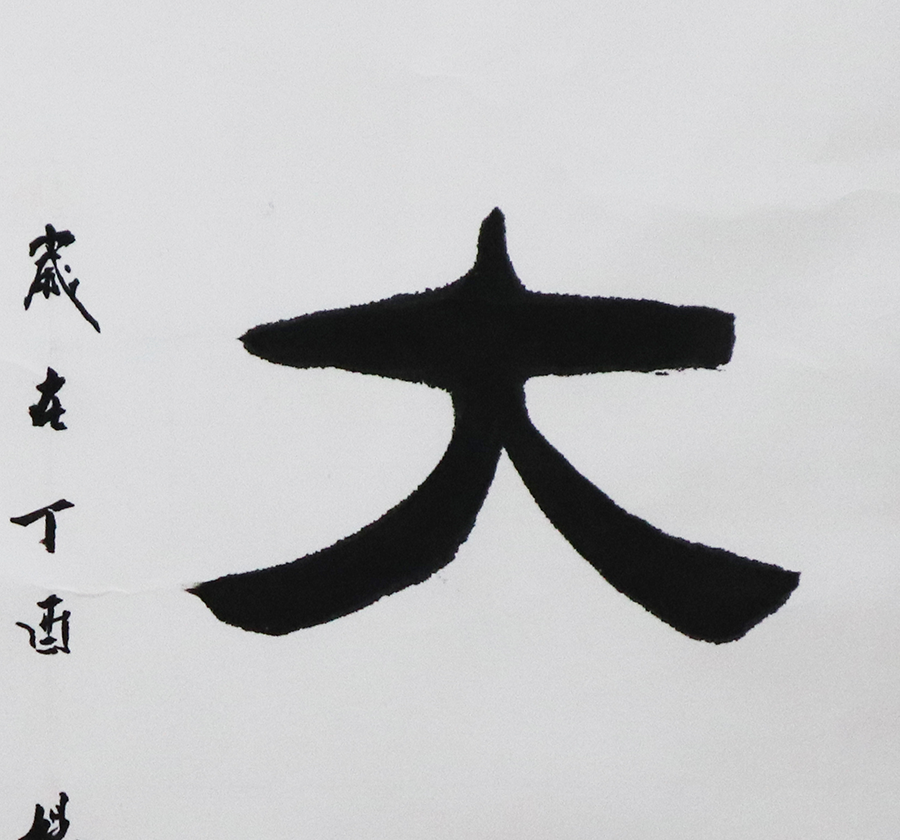 大
歲在丁酉